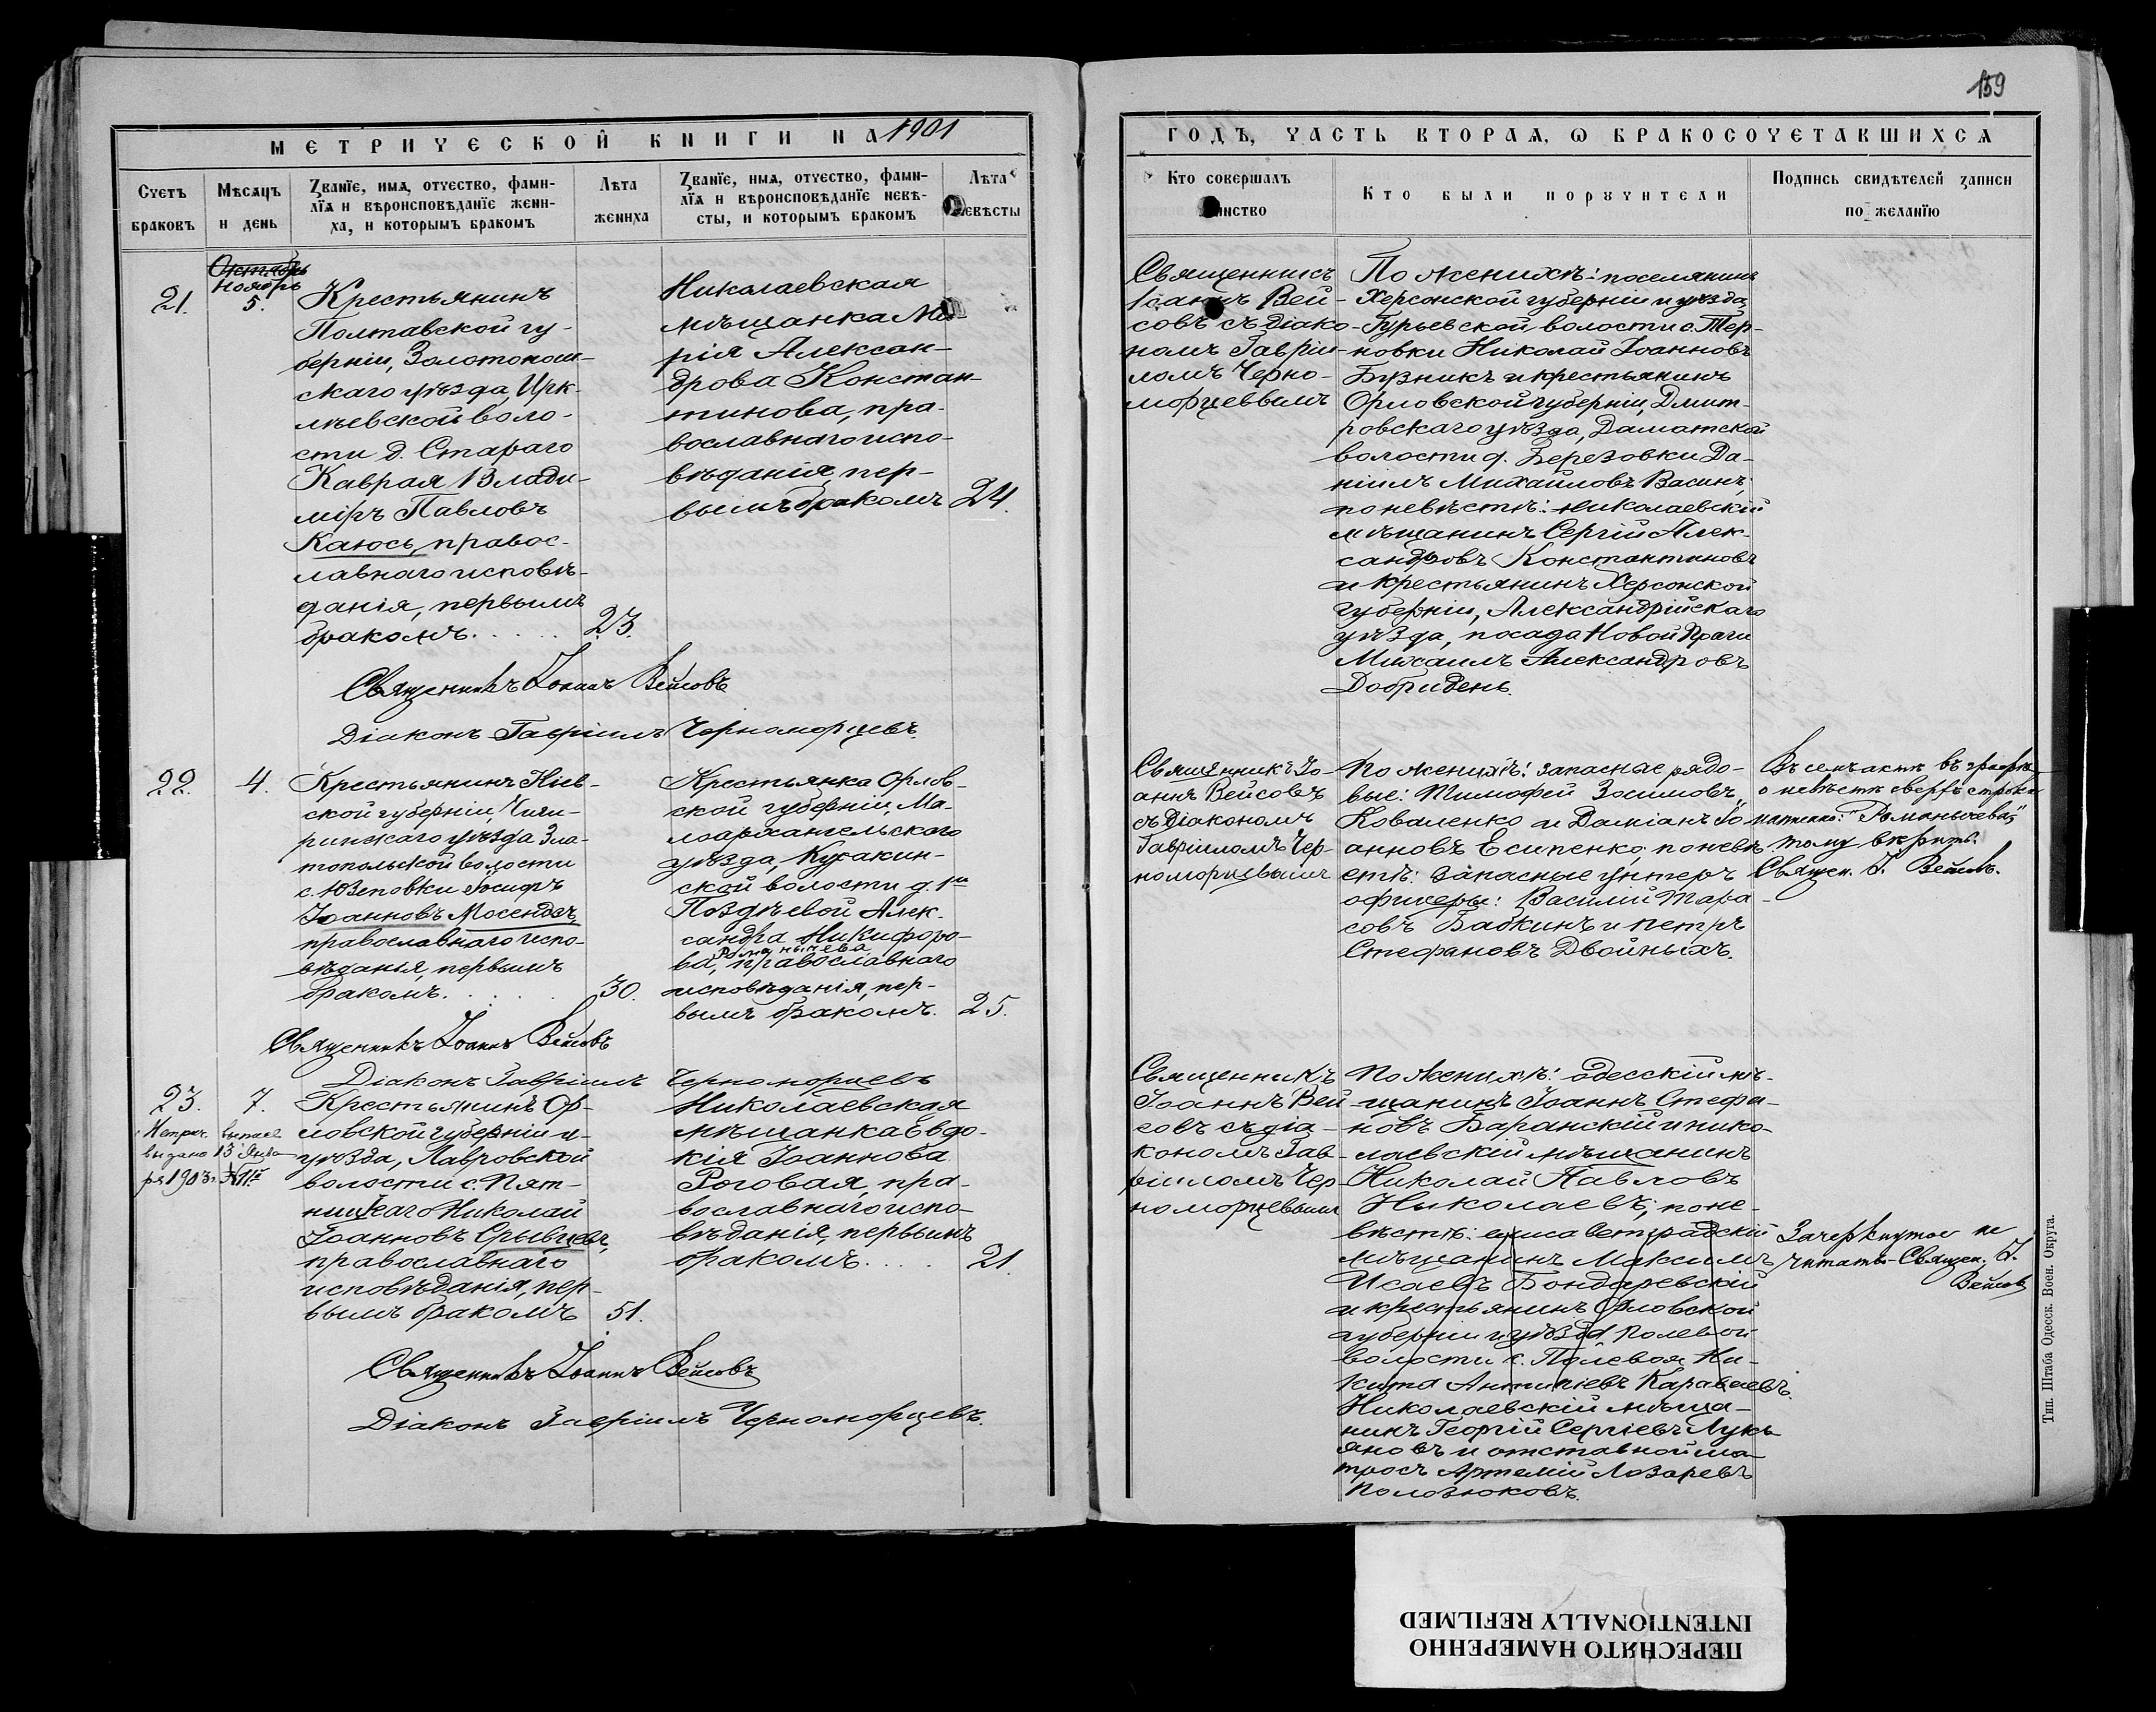 159
МЕТРИЧЕСКОЙ КНИГИ НА 1901
ГОДЪ, ЧАСТЬ ВТОРАЯ, Ѡ БРАКОСОЧЕТАВШИХСЯ
Счетъ
браковъ
Мѣсяцъ
и день
Званїе, имя, отчество, фами-
лїя и вѣроисповѣданїе жени-
ха, и которымъ бракомъ
Лѣта
жениха
Званїе, имя, отчество, фами-
лїя и вѣроисповѣданїе невѣ-
сты, и которымъ бракомъ
Лѣта
невѣсты
Кто совершалъ
инство
Кто были поручители
Подпись свидѣтелей записи
по желанїю
Октябрь
Ноябрь
21.
5.
Крестьянинъ
Полтавской гу-
берніи, Золотонош-
скаго уѣзда, Ирк-
лѣевской воло-
сти д. Стараго
Каврая Влади-
міръ Павловъ
Каюсь, правос-
лавнаго исповѣ-
данія, первымъ
бракомъ. . . . .
23.
Николаевская
мѣщанка Ма-
рія Алексан-
дрова Констан-
тинова, пра-
вославнаго испо-
вѣданія, пер-
вымъ бракомъ
24.
Священникъ Іоаннъ Вейсовъ
Діаконъ Гавріилъ Черноморцевъ.
Священникъ
Іоаннъ Вей-
совъ съ діако-
номъ Гавріи-
ломъ Черно-
морцевымъ
По женихѣ: поселянинъ
Херсонской губерніи и уѣзда
Гурьевской волости с. Тер-
новки Николай Іоанновъ
Бузникъ и крестьянинъ
Орловской губерніи, Дмит-
ровскаго уѣзда, Даматской
волости д. Березовки Да-
ніилъ Михайловъ Васинъ;
по невѣстѣ: николаевскій
мѣщанинъ Сергій Алек-
сандровъ Константиновъ
и крестьянинъ Херсонской
губерніи, Александрійскаго
уѣзда, посада Новой Праги
Михаилъ Александровъ
Добридень.
22.
4.
Крестьянинъ Кіев-
ской губерніи, Чиги-
ринскаго уѣзда Зла-
топольской волости
с. Юзеповки Іосифъ
Іоанновъ Мосендзъ,
православнаго испо-
вѣданія, первымъ
бракомъ. . . . .
30.
Крестьянка Орлов-
ской губерніи, Ма-
лоархангельскаго
уѣзда, Куракин-
ской волости д. 1й
Поздѣевой Алек-
сандра Никифоро-
Романычева
ва, православнаго
исповѣданія, пер-
вымъ бракомъ.
25.
Священникъ Іоаннъ Вейсовъ
Діаконъ Гавріилъ Черноморцевъ
Священникъ Іо-
аннъ Вейсовъ
съ Діакономъ
Гавріиломъ Чер-
номорцевымъ
По женихѣ: запасные рядо-
вые: Тимофей Зосимовъ
Коваленко и Даміанъ Іо-
анновъ Есипенко; по невѣ-
стѣ: запасные унтеръ
офицеры: Василій Тара-
совъ Бабкинъ и Петръ
Стефановъ Двойныхъ.
Въ семъ актѣ въ графѣ
о невѣстѣ сверхъ строки
написано: "Романычева",
тому вѣрить.
Священ. І. Вейсовъ.
23.
7.
Метрич. выпись
выдано 13 Янва-
ря 1903 г.
Крестьянинъ Ор-
ловской губерніи и
уѣзда, Лавровской
волости с. Пят-
ницкаго Николай
Іоанновъ Срывцевъ,
православнаго
исповѣданія, пер-
вымъ бракомъ
51.
Николаевская
мѣщанка Евдо-
кія Іоаннова
Роговая, пра-
вославнаго испо-
вѣданія, первымъ
бракомъ. . . .
21.
Священникъ Іоаннъ Вейсовъ
Діаконъ Гавріилъ Черноморцевъ.
Священникъ
Іоаннъ Вей-
совъ съ діа-
кономъ Гав-
ріиломъ Чер-
номорцевымъ
По женихѣ: одесскій мѣ-
щанинъ Іоаннъ Стефа-
новъ Баранскій и нико-
лаевскій мѣщанинъ
Николай Павловъ
Николаевъ; по не-
вѣстѣ: елисаветградскій
мѣщанинъ Максимъ
Исаевъ Бондаревскій
и крестьянинъ Орловской
губерніи и уѣзда, Полевой
волости с. Полевоя Ни-
кита Антипіевъ Караваевъ.
Николаевскій мѣща-
нинъ Георгій Сергіевъ Лукь-
яновъ и отставной ма-
тросъ Артемій Лазаревъ
Полозюковъ.
Зачеркнутое не
читать. Священ. І.
Вейсовъ
Тип. Штаба Одесск. Воен. Округа.
ПЕРЕСНЯТО НАМЕРЕННО
INTENTIONALLY REFILMED